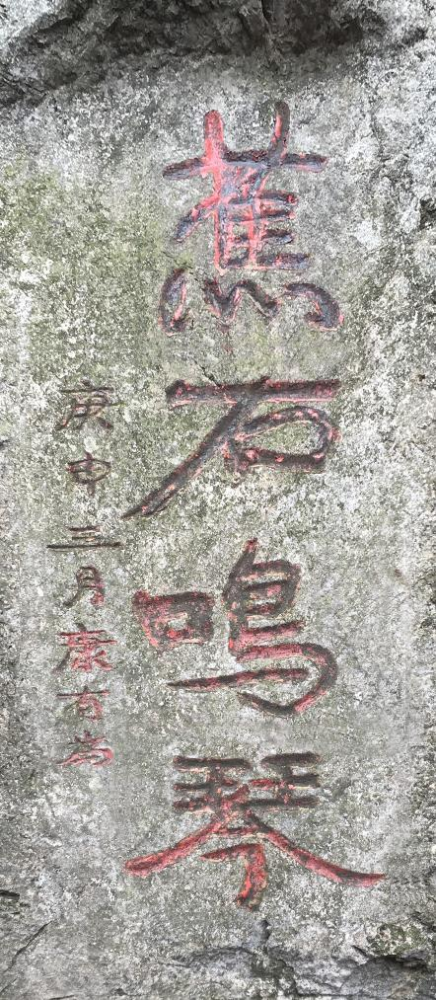 蕉石鳴琴
庚申三月康有為